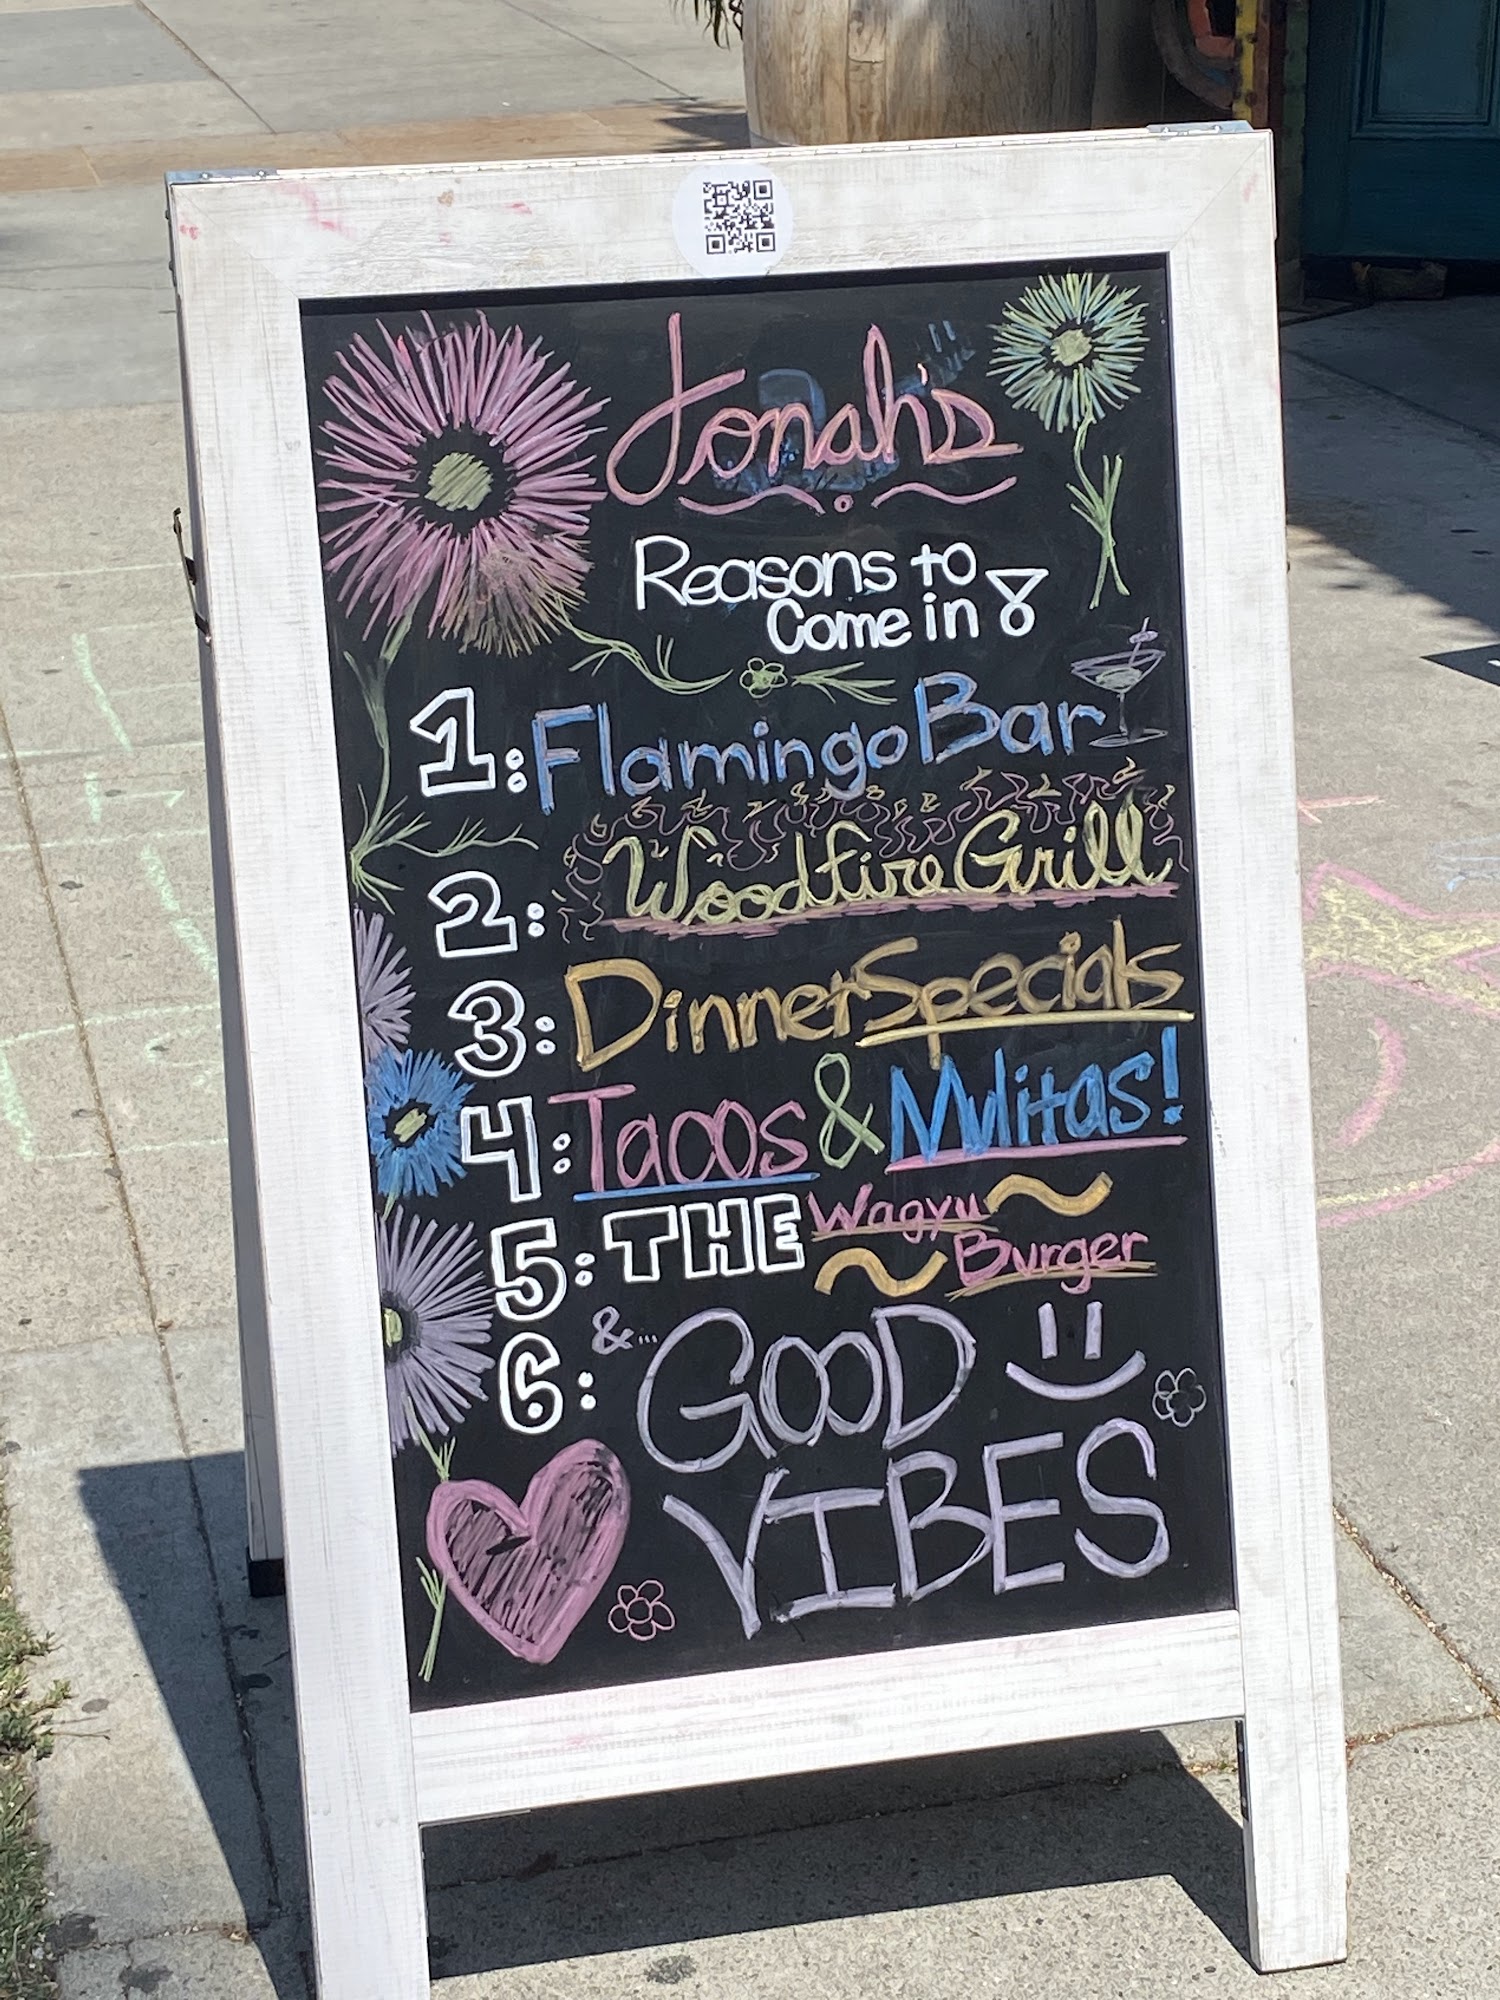 Jonah's
Reasons to
Come in!
1: Flamingo Bar
2: Woodfire Grill
3: Dinner Specials
4: Tacos & Mulitas!
5: THE Wagyu
Burger
6: &... GOOD
VIBES